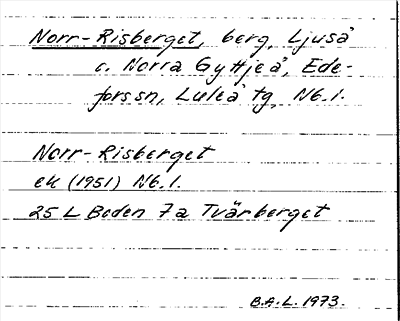 Norr-Risberget, berg, Ljuså
o. Norra Gyttjeå, Ede-
fors sn, Luleå tg, Nb. l.
Norr-Risberget
ek (1951) Nb. l.
25 L Boden 7a Tvärberget
B.A.L. 1973.